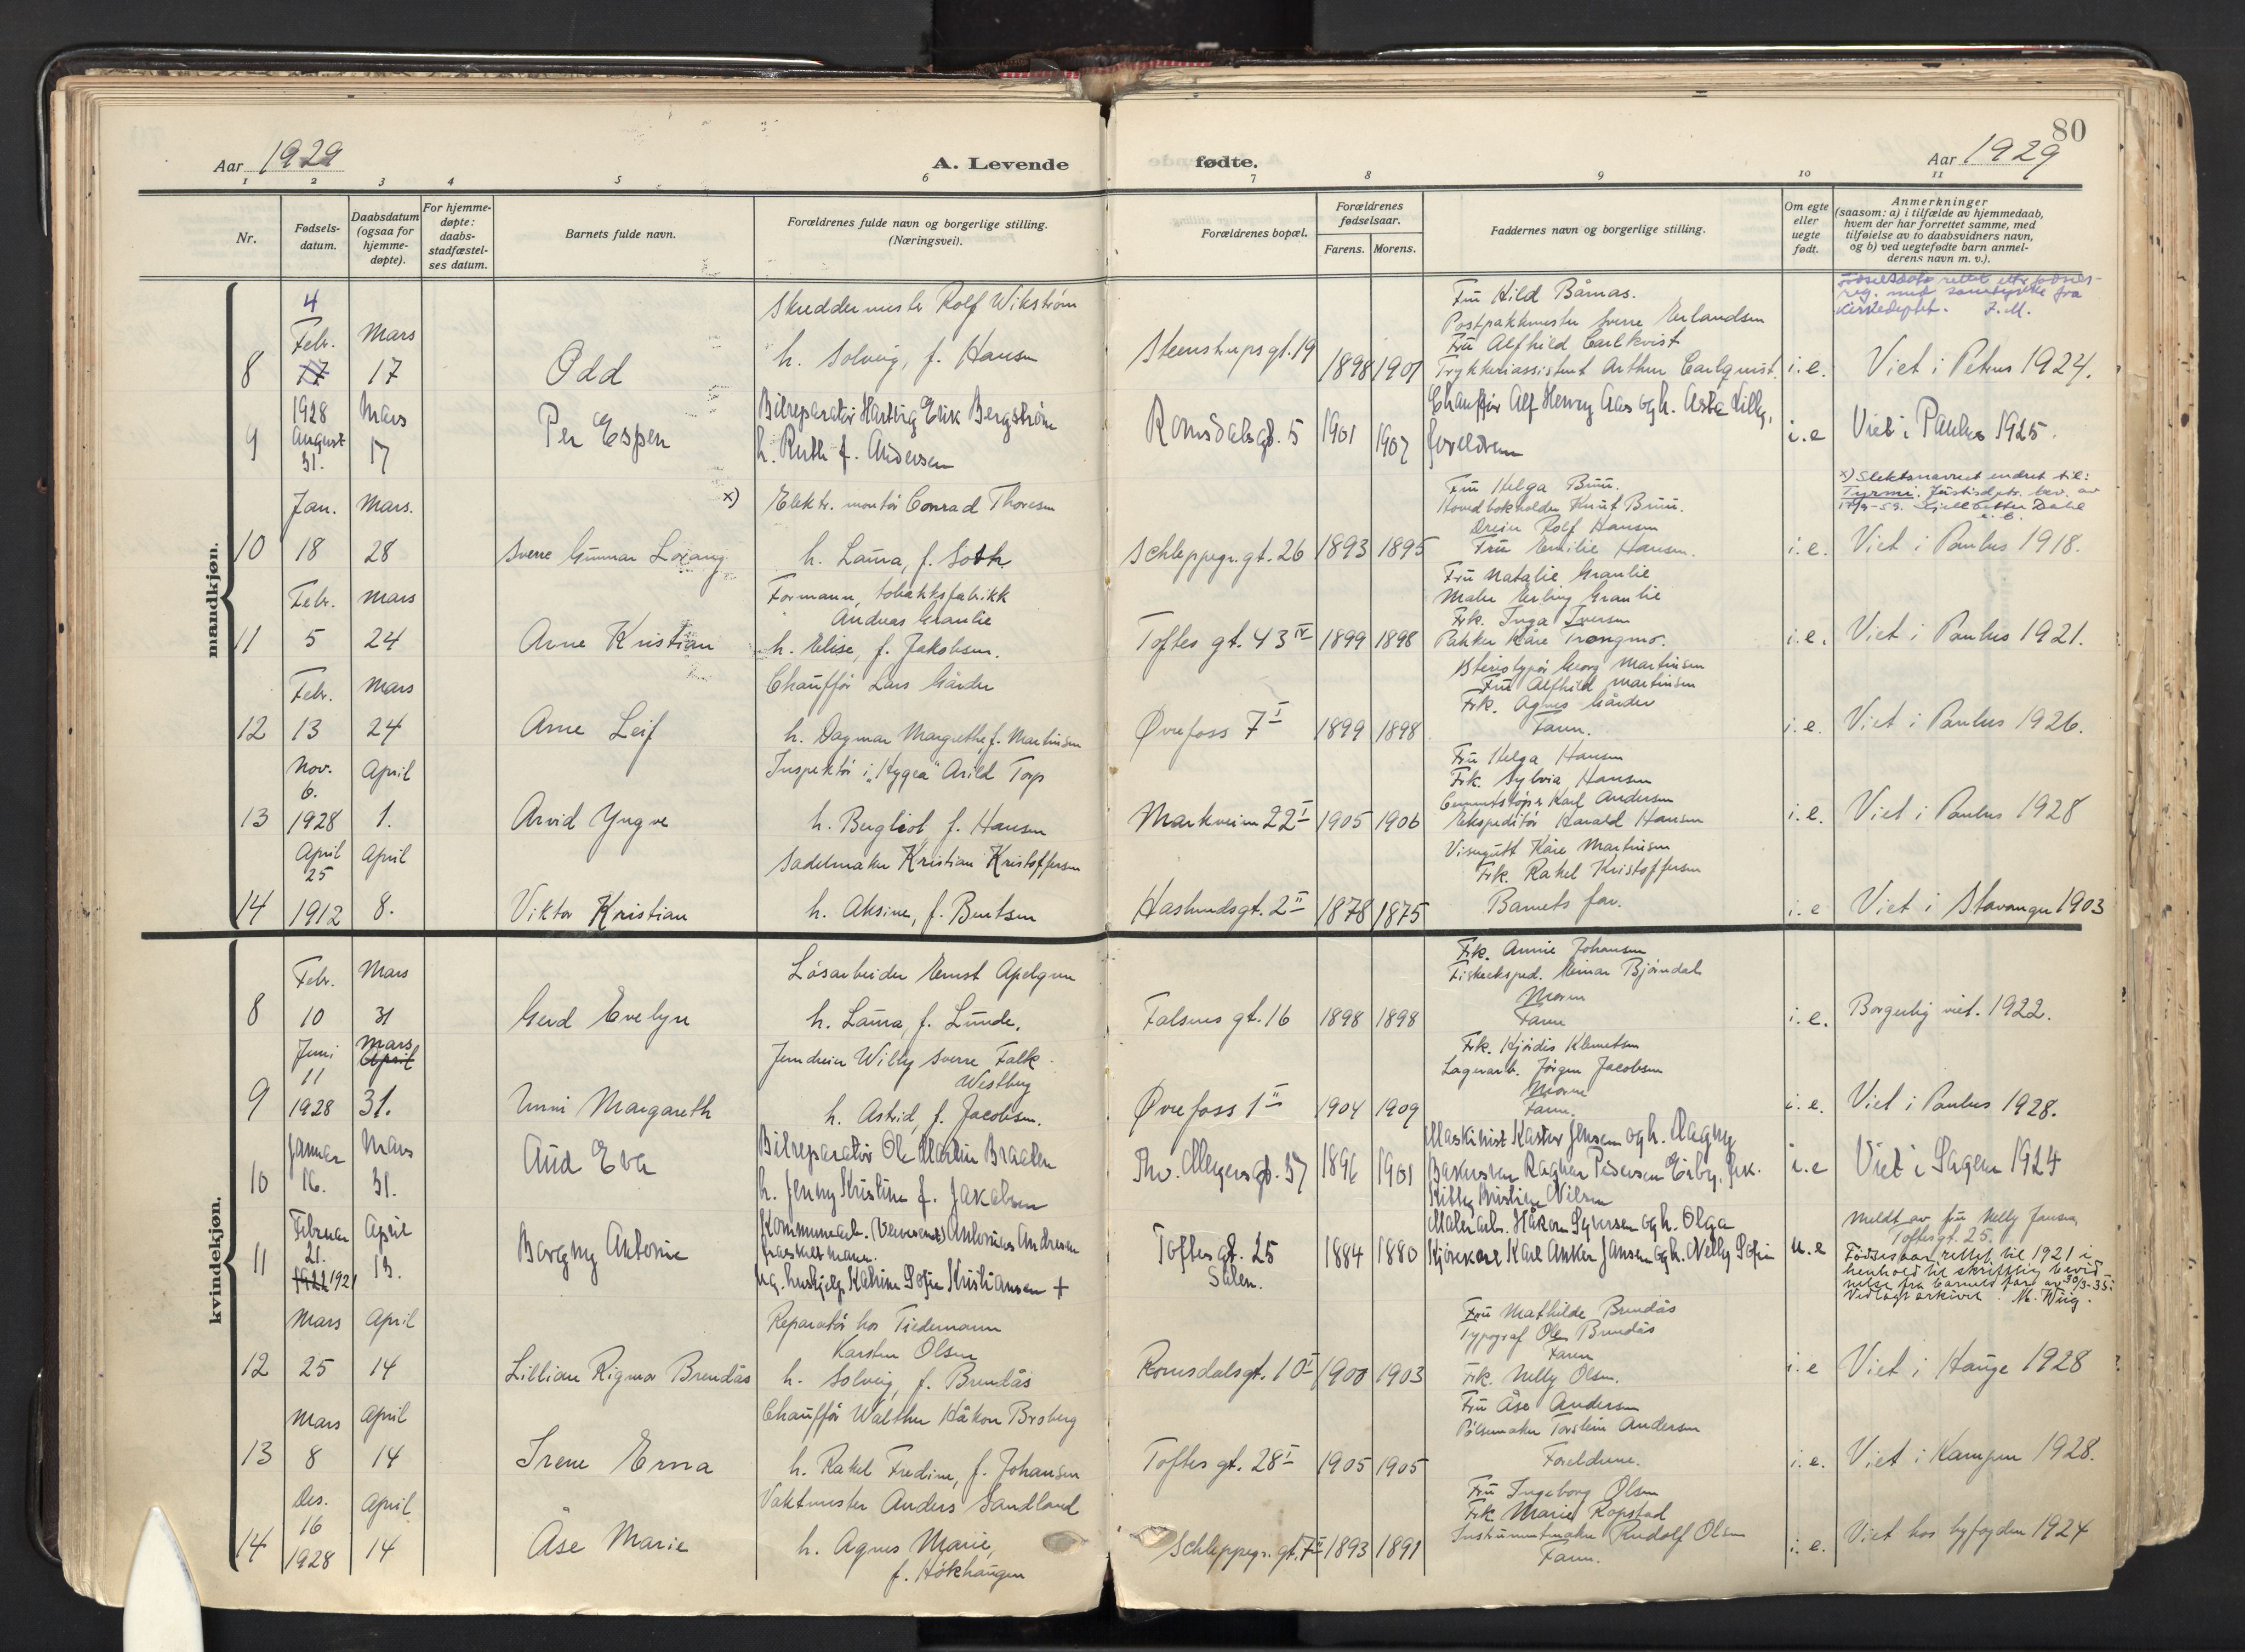 80
Aar 1929
A. Levende
fødte.
Aar 1929
1 2 3 4 5 6 7 8 9 10 11
Nr.
Fødsels-
datum.
Daabsdatum
(ogsaa for
hjemme-
døpte).
For hjemme-
døpte:
daabs-
stadfæstel-
ses datum.
Barnets fulde navn.
Forældrenes fulde navn og borgerlige stilling.
(Næringsvei).
Forældrenes bopæl.
Forældrenes
fødselsaar.
Farens. Morens.
Faddernes navn og borgerlige stilling.
Om egte
eller
uegte
født.
Anmerkninger
(saasom: a) i tilfælde av hjemmedaab,
hvem der har forrettet samme, med
tilføielse av to daabsvidners navn,
og b) ved uegtefødte barn anmel-
derens navn m. v.).
mandkjøn.
8
4
Febr.
17
Mars
17
Odd
Skreddermester Rolf Wikstrøm
h. Solveig, f. Hansen
Steenstrupsgt. 19
1898 1901
Fru Hild Bårnas.
Postpakkmester Sverre Erlandsen
Fru Alfhild Carlkvist
Trykkeriassistent Arthur Carlquist.
i. e.
Fødselsdato rettet efter fødsels-
reg. med samtykke fra
Kirkedeptet. J. M.
Viet i Petrus 1924.
9
1928
August
31.
Mars
17
Per Espen
Bilreparatør Hartvig Erik Bergstrøm
h. Ruth f. Andersen
Romsdalsgt. 5
1901 1907
Chauffør Alf Henry Aas og h. Asta Lilly,
foreldrene
i. e
Viet i Paulus 1925.
10
Jan.
18
Mars.
28
Sverre Gunnar Lorang
x) Elektr. montør Conrad Thoresen
h. Laura, f. Soth
Schleppegr. gt. 26
1893 1895
Fru Helga Bruu.
Hovedbokholder Knut Bruu.
Dreier Rolf Hansen
Fru Emilie Hansen.
i. e.
x) Slektsnavnet endret til:
Tyrmi. Justisdptr. bev. av
Kjell Petter Dahl
Viet i Paulus 1918.
11
Febr.
5
Mars
24
Arne Kristian
Formann, tobakksfabrikk
Andreas Granlie
h. Elise, f. Jakobsen.
Toftes gt. 43 IV
1899 1898
Fru Natalie Granlie
Maler Erling Granlie
Frk. Inga Iversen
Pakker Kåre Trongmo.
i. e.
Viet i Paulus 1921.
12
Febr.
13
Mars
24
Arne Leif
Chauffør Lars Gårder
h. Dagmar Margrethe f. Martinsen
Øvrefoss 7 I
1899 1898
Stereotypør Georg Martinsen
Fru Alfhild Martinsen
Frk. Agnes Gårder
Faren.
i. e.
Viet i Paulus 1926.
13
Nov.
6.
1928
April
1.
Arvid Yngve
Inspektør i "Hygea" Arild Torp
h. Bergliot f. Hansen
Markveien 22 I
1905 1906
Fru Helga Hansen
Frk. Sylvia Hansen
Cementstøper Karl Andersen
Ekspeditør Harald Hansen
i. e.
Viet i Paulus 1928
14
April
25
1912
April
8.
Viktor Kristian
Sadelmaker Kristian Kristoffersen
h. Aksine, f. Bentsen
Haslundsgt. 2 II
1878 1875
Visergutt Kåre Martinsen
Frk. Rakel Kristoffersen
Barnets far.
i. e
Viet i Stavanger 1903
kvindekjøn.
8
Febr.
10
Mars
31
Gerd Evelyn
Løsarbeider Ernst Apelgren
h. Laura, f. Lunde.
Falsens gt. 16
1898 1898
Frk. Annie Johansen
Fiskeeksped. Einar Bjørndal
Moren
Faren
i. e.
Borgerlig viet. 1922.
9
Juni
11
1928
Mars
April
31.
Unni Margareth
Jerndreier Willy Sverre Falk
Westbye
h. Astrid, f. Jacobsen.
Øvrefoss 1 II
1904 1909
Frk. Hjørdis Klemetsen
Lagerarb. Jørgen Jacobsen
Moren
Faren.
i. e.
Viet i Paulus 1928.
10
Januar
16.
Mars
31.
Aud Eva
Bilreparatør Ole Martin Braaten
h. Jenny Kristine f. Jakobsen
Thv. Meyersgt. 57
1896 1901
Maskinist Kastor Jensen og h. Dagny
Bakersvenn Ragnar Pedersen Eriby, frk.
Kitty Kristine Nilsen
i. e
Viet i Sagene 1924
11
Februar
21.
1922 1921
April
13.
Borgny Antonie
Kommunearb. (Renovent) Antonius Andresen
fraskilt mann.
ug. hushjelp Katrine Sofie Kristiansen +
Toftes gt. 25
Salen.
1884 1880
Malerarb. Håkon Syversen og h. Olga
Kjørekarl Karl Anker Jansen og h. Nelly Sofie
u. e
Meldt av fru Nelly Jansen,
Toftesgt. 25.
Fødselsaar rettet til 1921 i
henhold til skriftlig bevid-
nelse fra barnets far av 30/3-35.
Vedlagt arkivet. M. Wiig.
12
Mars
25
April
14
Lillian Rigmor Brendås
Reparatør hos Tiedemann
Karsten Olsen
h. Solveig, f. Brendås
Romsdalsgt. 10 I
1900 1903
Fru Mathilde Brendås
Typograf Ole Brendås
Faren
Frk. Nelly Olsen.
i. e
Viet i Hauge 1928
13
Mars
8
April
14
Irene Erna
Chauffør Walther Håkon Broberg
h. Rakel Fredine, f. Johansen
Toftes gt. 28 I
1905 1905
Fru Åse Andersen
Pølsemaker Torstein Andersen
Foreldrene.
i. e.
Viet i Kampen 1928.
14
Des.
16
1928
April
14
Åse Marie
Vaktmester Anders Sandland
h. Agnes Marie,
f. Høkhaugen
Schleppegr. gt. 7 II
1893 1891
Fru Ingeborg Olsen
Frk. Marie Rapstad
Instrumentmaker Rudolf Olsen
Faren.
i. e.
Viet hos byfogden 1924